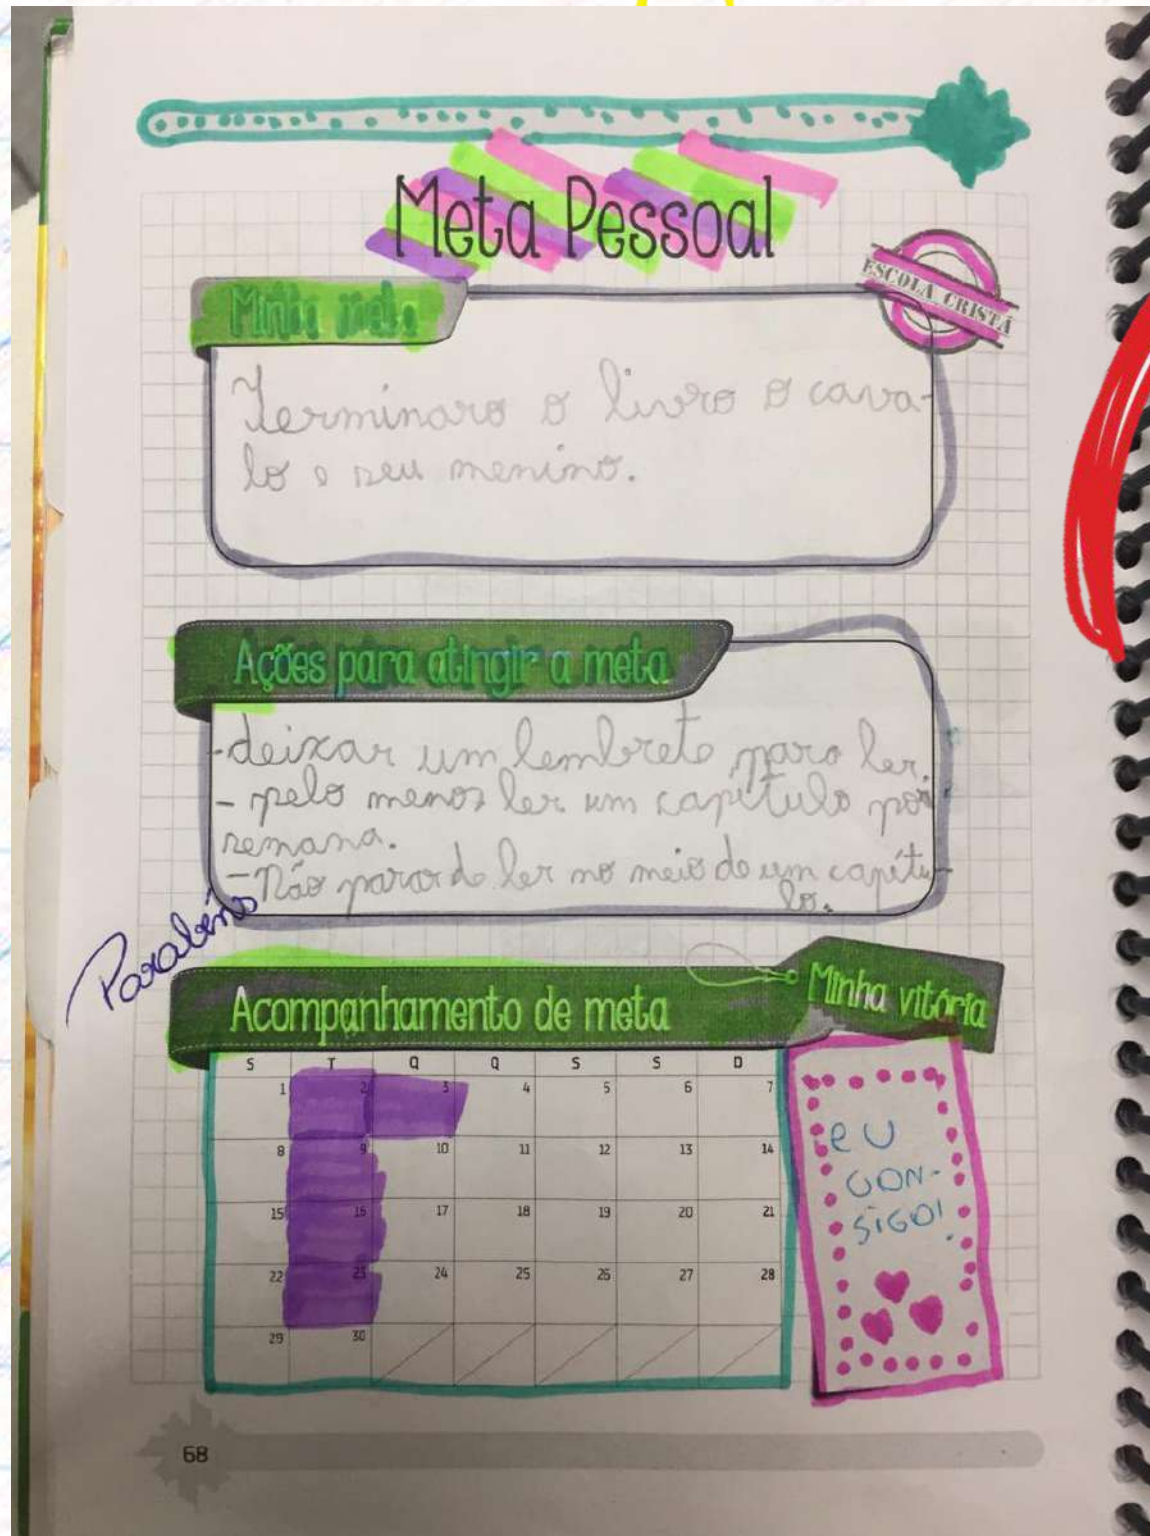 Meta Pessoal
Minha meta
ESCOLA CRISTÃ
Terminaro o livro o cava-
lo e seu menino.
Ações para atingir a meta
-deixar um lembrete para ler.
- pelo menos ler um capítulo por
semana.
-Não parar de ler no meio de um capítu-
lo.
Parabéns
Acompanhamento de meta
Minha vitória
S T Q Q S S D
1 2 3 4 5 6 7
8 9 10 11 12 13 14
15 16 17 18 19 20 21
22 23 24 25 26 27 28
29 30
eU
CON-
SiGO!
68